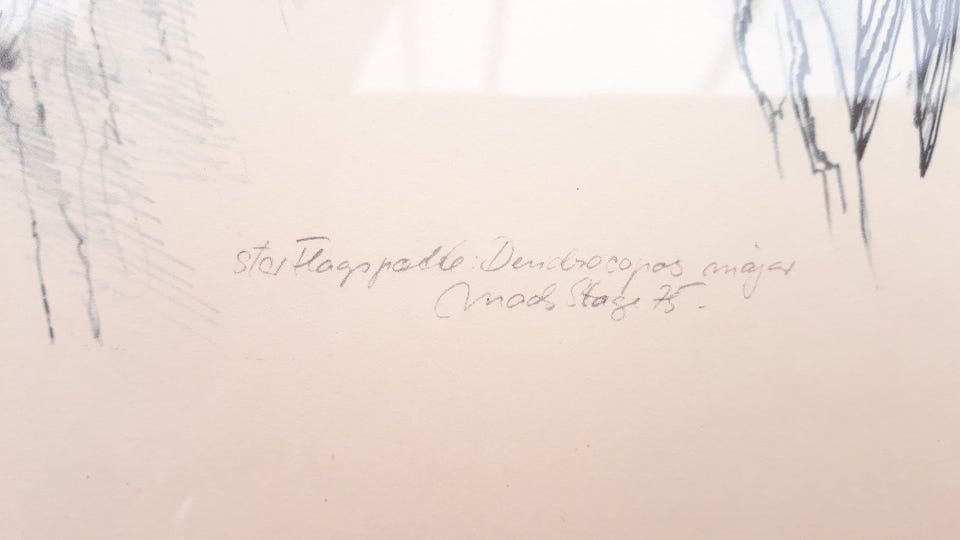 stor Flagspætte: Dendrocopos major
Mads Stage 75.